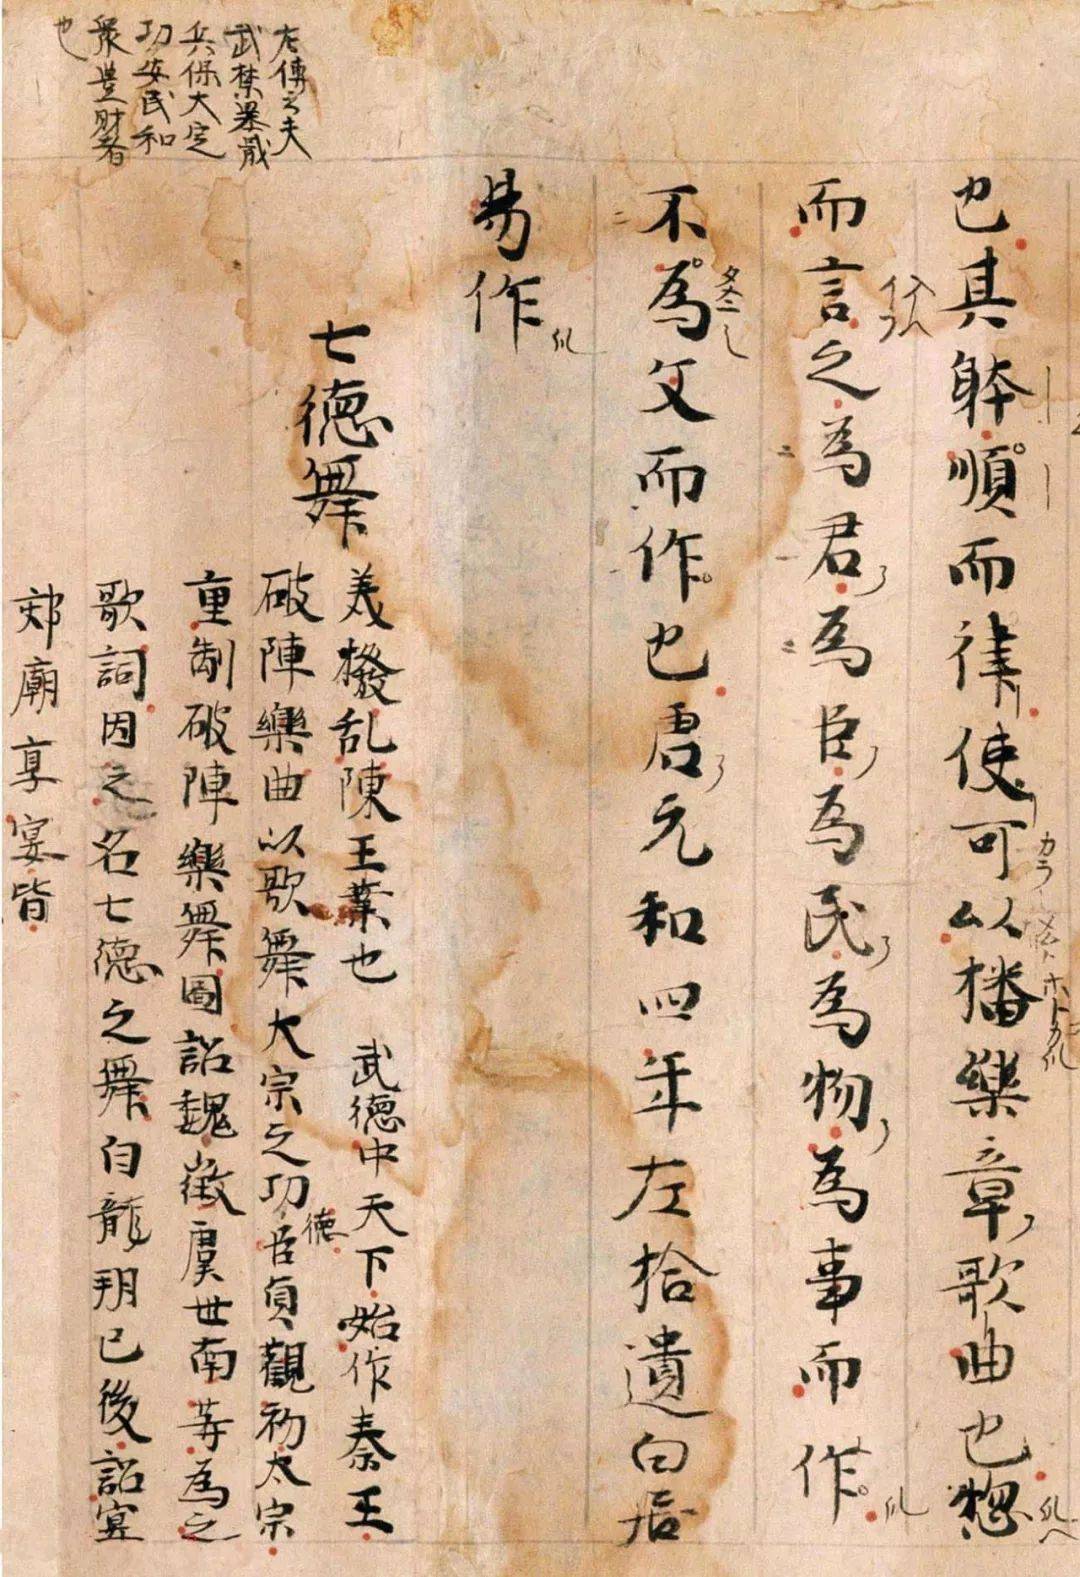 也其躰順而律使可以播樂章歌曲也惣
而言之為君為臣為民為物為事而作
不為文而作也唐元和四年左拾遺白居
易作
左傳云夫
武禁暴戢
兵保大定
功安民和
衆豊財者
也
七德舞
美撥乱陳王業也 武德中天下始作秦王
破陣樂曲以歌舞大宗之功臣貞觀初太宗
德
重制破陣樂舞圖詔魏徵虞世南等為之
歌詞因之名七德之舞自龍朔已後詔宴
郊廟享宴皆